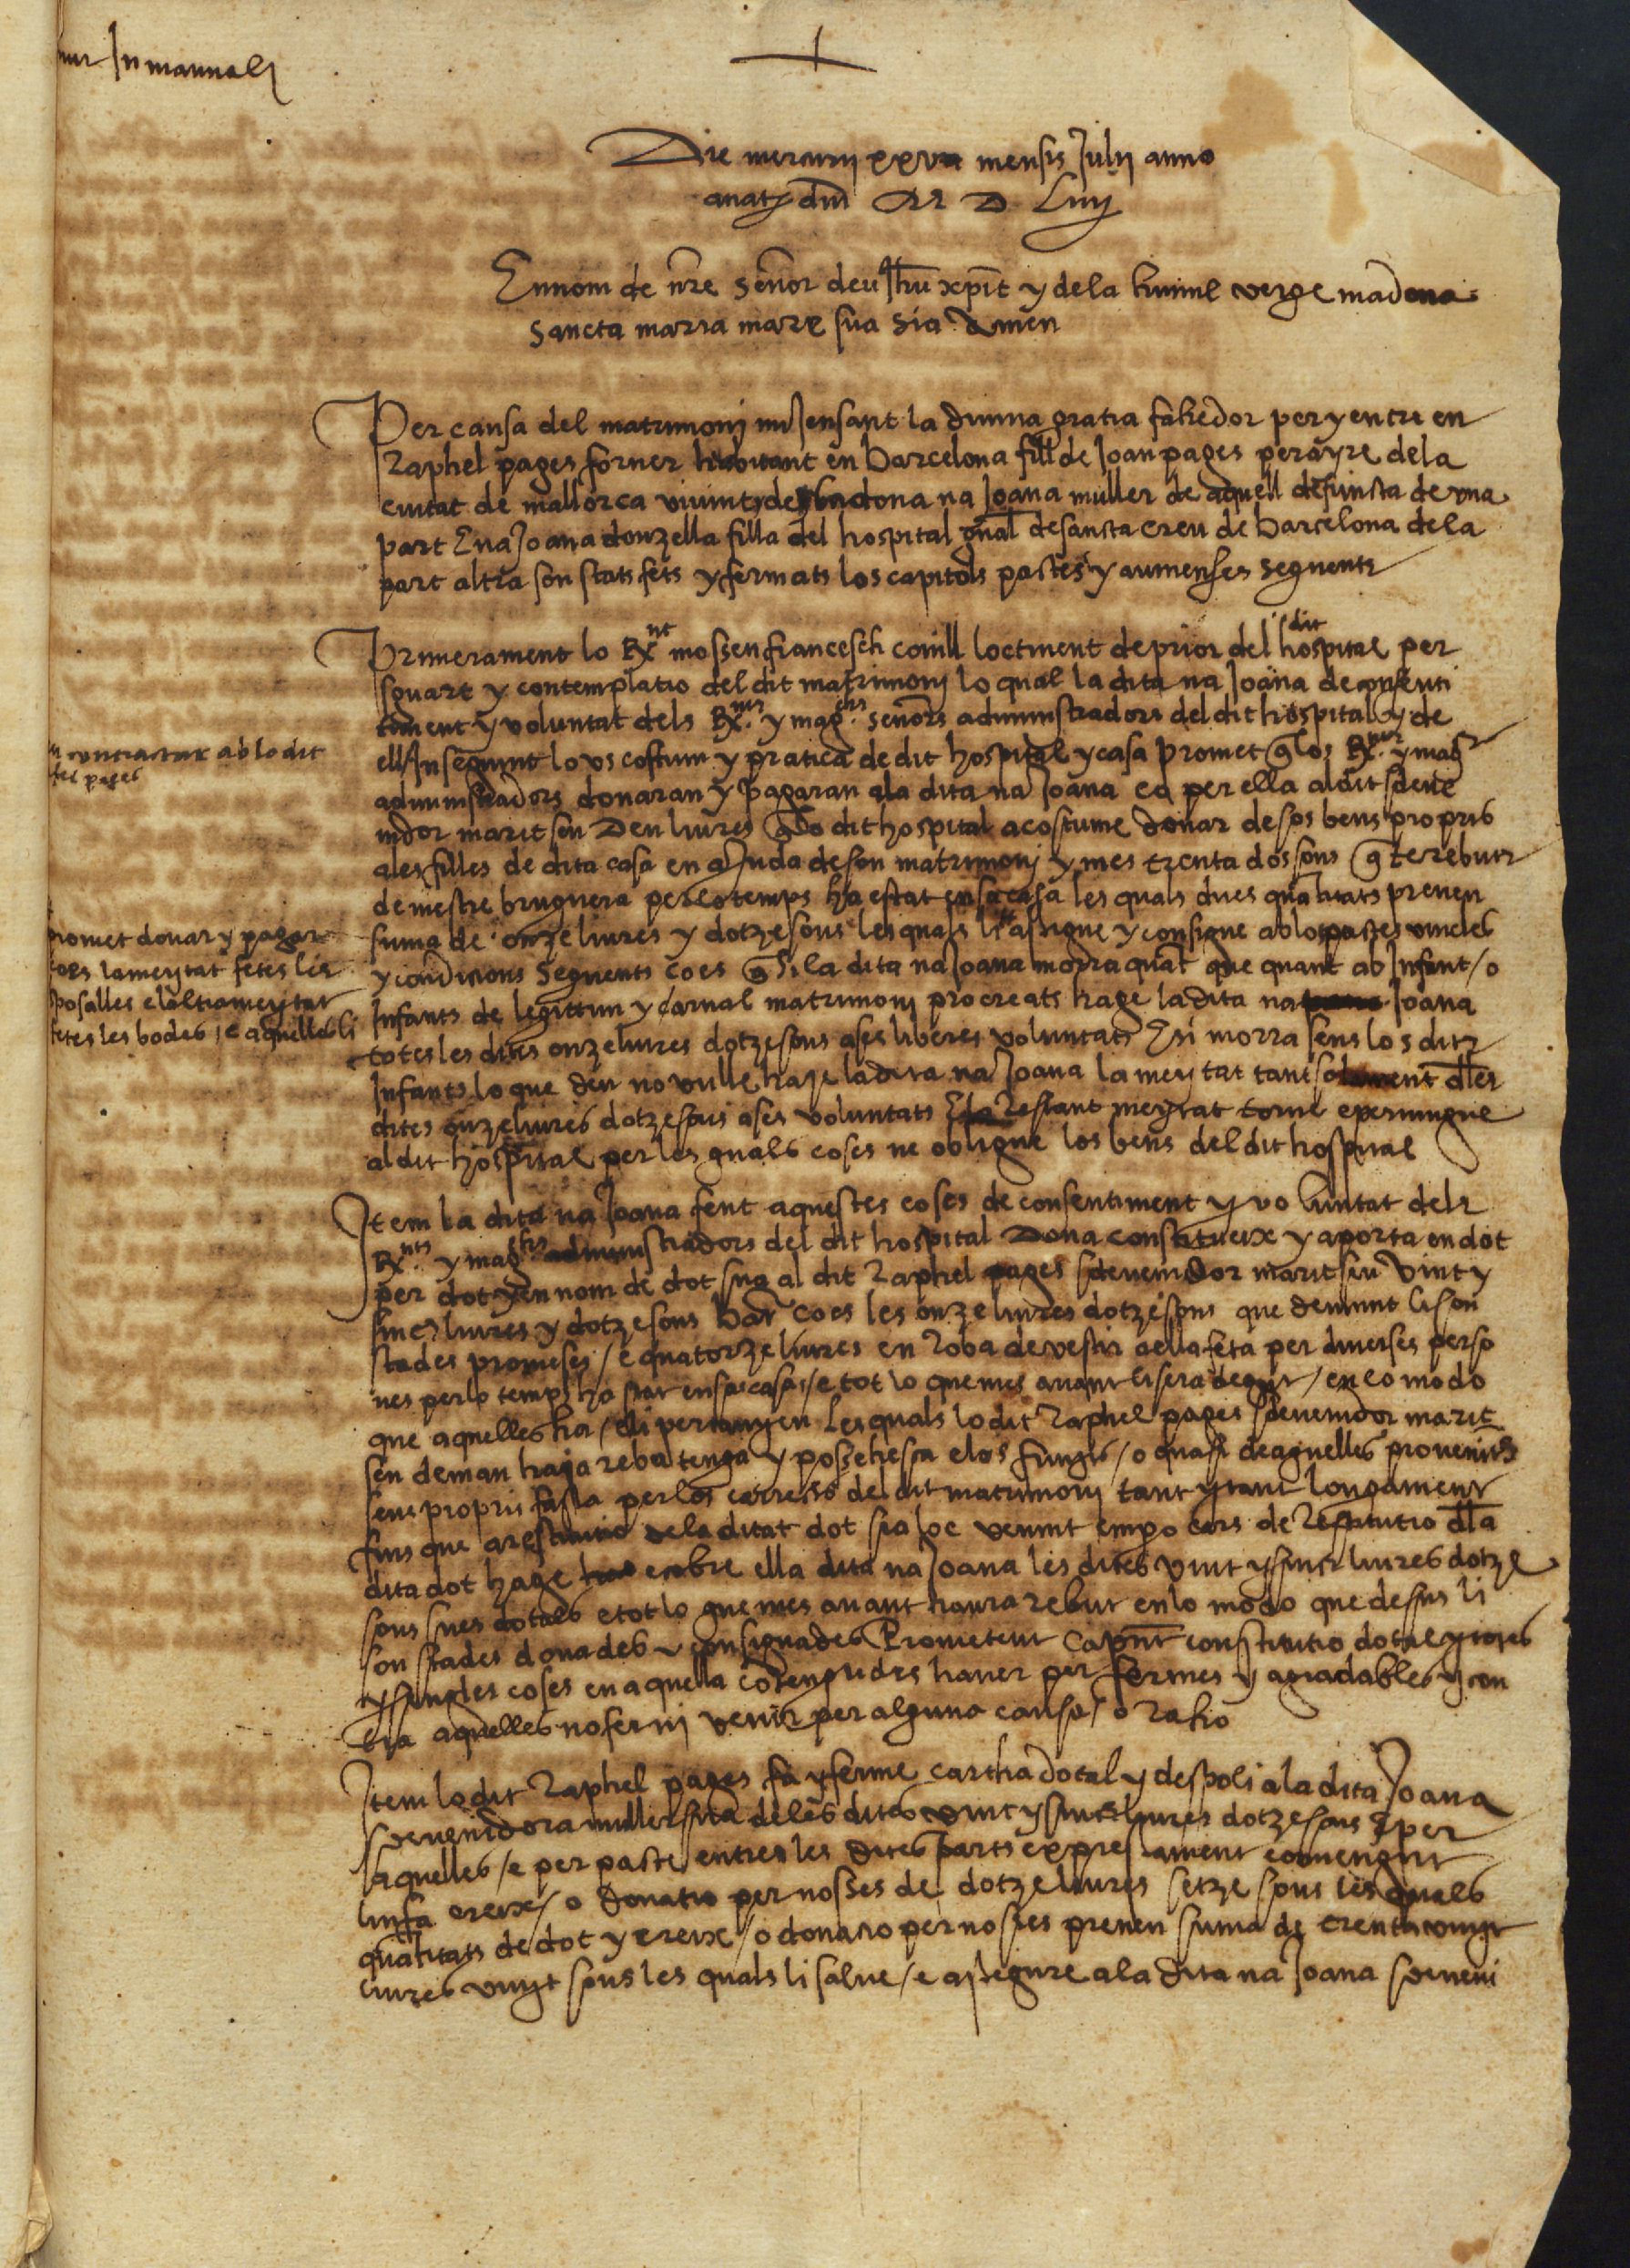 In manuali
Die mercurii xxv mensis Julii anno
a nat. dni M D Liiij
En nom de nre senor deu Jhu xpist y de la humil verge madona
sancta maria mare sua sia Amen
Per causa del matrimoni mijensant la divina gratia fahedor per y entre en
Raphel pages forner habitant en barcelona fill de Joan pages perayre de la
ciutat de mallorca vivint y de la dona na Joana muller de aquell defuncta de una
part E na Joana donzella filla del hospital gnal de sancta creu de barcelona de la
part altra son stats fets y fermats los capitols pactes y avinenses seguents
Primerament lo Rnt mossen francesch conill loctinent de prior del dit hospital per
sguart y contemplatio del dit matrimoni lo qual la dita na Joana de consenti
timent y voluntat dels Rnts y magchs senors administradors del dit hospital y de
ell Inseguint lo us costum y pratica de dit hospital y casa promet q los Rnts y magchs
administradors donaran y pagaran a la dita na Joana ea per ella al dit sdeve
nidor marit seu Deu liures q lo dit hospital acostume donar de sos bens propris
a les filles de dita casa en ajuda de son matrimoni y mes trenta dos sous q te rebuts
de mestre bruguera per lo temps ha estat en sa casa les quals dues quatitats prenen
suma de onze liures y dotze sous les quals li assigne y consigne ab los pactes vincles
y condicions seguents ço es q si la dita na Joana morra quāt que quant ab Infant / o
Infants de legittim y carnal matrimoni procreats hage la dita na Joana
totes les dites onze liures dotze sous a ses liberes voluntats E si morra sens los dits
Infants lo que deu no vulle haje la dita na Joana la meytat tant solament dles
dites onze liures dotze sous a ses voluntats E la restant meytat torne e pervingue
al dit hospital per les quals coses ne obligue los bens del dit hospital
Item la dita na Joana fent aquestes coses de consentiment y voluntat dels
Rnts y magchs administradors del dit hospital Dona constitueix y aporta en dot
per dot y en nom de dot sua al dit Raphel pages sdevenidor marit seu Vint y
sinch liures y dotze sous bar ço es les onze liures dotze sous que demunt li son
stades promeses / e quatorze liures en roba de vestir a ella feta per diverses perso
nes per lo temps ha stat en sas casas / e tot lo que mes avant li sera degut / en lo modo
que aquelles ha / e li pertanyen Les quals lo dit Raphel pages sdevenidor marit
seu deman haja reba tenga y possehesca e los fruyts / o quasi de aquelles provenits
seus propris fassa per los carrechs del dit matrimoni tant y tant longament
fins que a restitutio de la ditat dot sia loc venint empo cars de restitutio dla
dita dot hage e cobre ella dita na Joana les dites vint y sinch liures dotze
sous sues dotals e tot lo que mes avant haura rebut en lo modo que dessus li
son stades donades y consignades Prometent la pnt constitutio dotal y totes
y sengles coses en aquella cotengudes haver per fermes y agradables y con
tra aquelles no fer ni venir per alguna causa / o raho
Item lo dit Raphel pages fa y ferme cartha dotal y despoli a la dita Joana
sdevenidora muller sua de les dites vint y sinch liures dotze sous E per
aquelles / e per pacte entre les dites parts expressament convengut
lin fa creix / o donatio per nosses de dotze liures setze sous les quals
quatitats de dot y creix / o donatio per nosses prenen suma de trenta vuyt
liures vuyt sous les quals li salve / e assegure a la dita na Joana sdeveni
contractar ab lo dit
pages
promet donar y pagar
ço es la meytat fetes les
sposalles e laltra meytat
fetes les bodes / e aquelles li